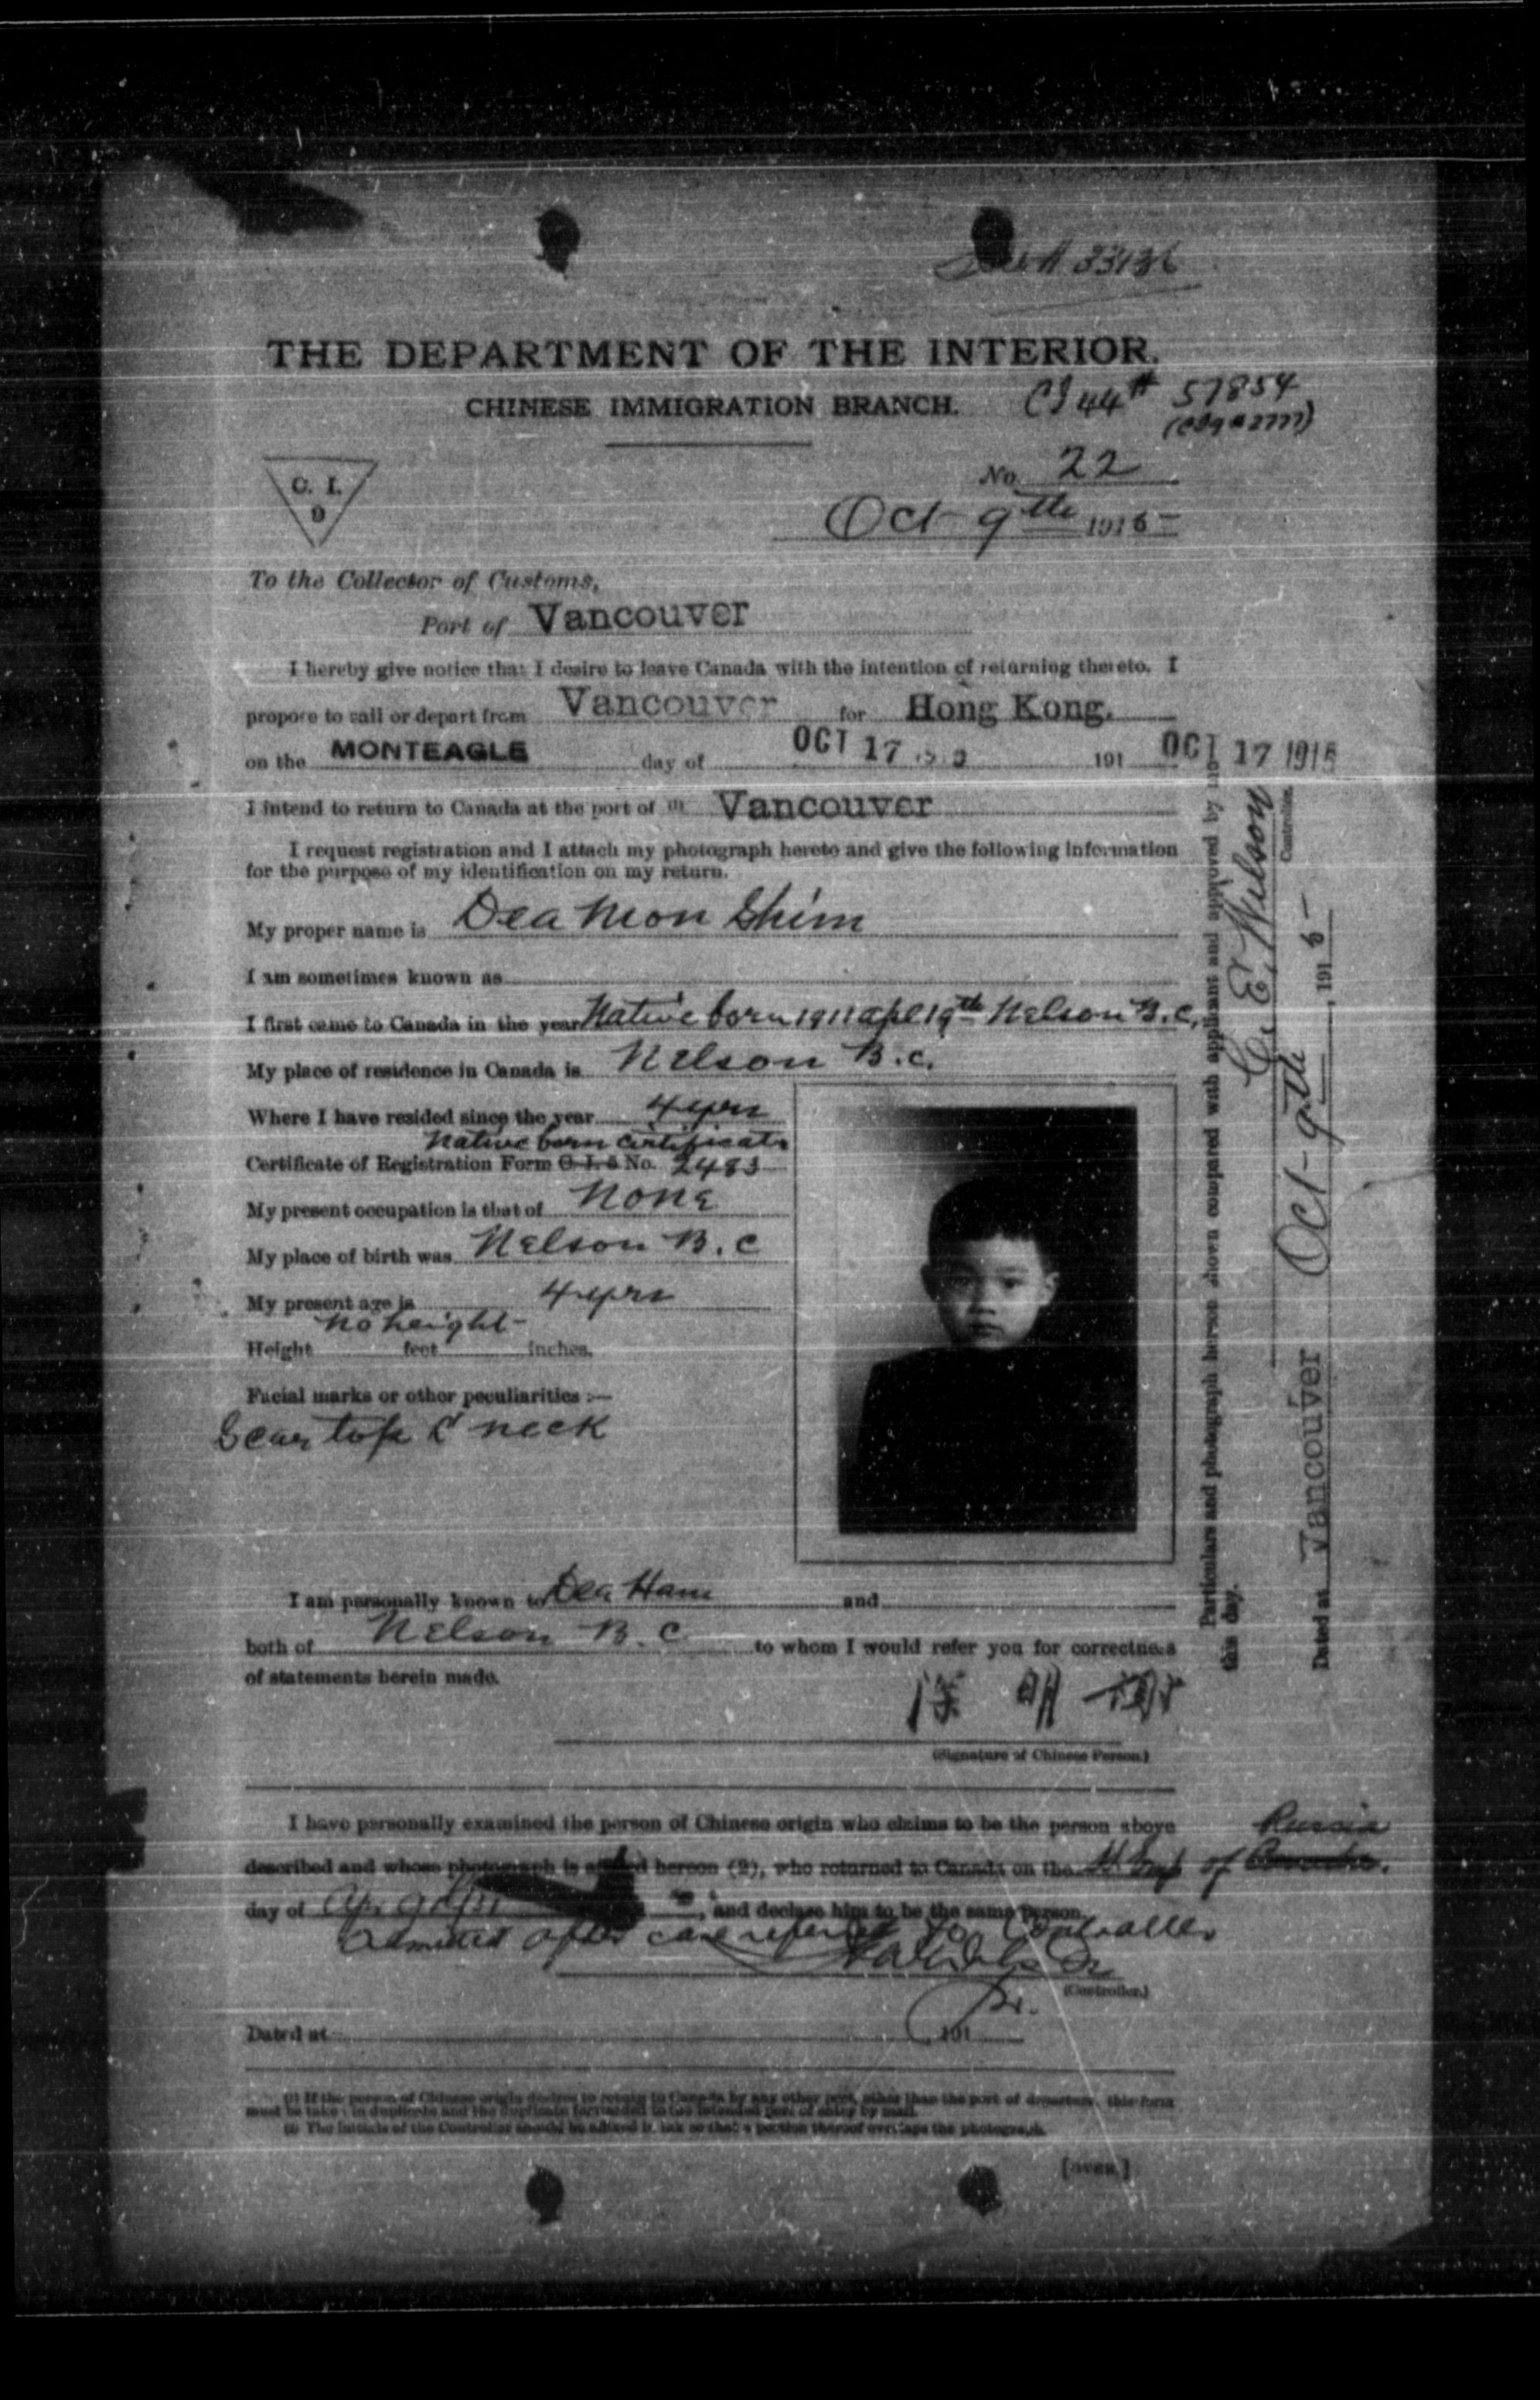 33136
THE DEPARTMENT OF THE INTERIOR.
CHINESE IMMIGRATION BRANCH.
CI 44 # 57854
(CI9 #2777)
C. I.
9
No. 22
Oct 9th 1915
To the Collector of Customs,
Port of Vancouver
I hereby give notice that I desire to leave Canada with the intention of returning thereto. I
propose to sail or depart from Vancouver for Hong Kong.
on the MONTEAGLE day of OCT 17 191 OCT 17 1915
I intend to return to Canada at the port of (1) Vancouver
I request registration and I attach my photograph hereto and give the following information
for the purpose of my identification on my return.
My proper name is Dea Mon Shim
I am sometimes known as
I first came to Canada in the year Native born 1911 Apl 19th Nelson B.C.
My place of residence in Canada is Nelson B.C.
Where I have resided since the year 4 yrs
Native born certificate
Certificate of Registration Form C. I. 5 No. 2483
My present occupation is that of None
My place of birth was Nelson B.C
My present age is 4 yrs
no height
Height feet inches.
Facial marks or other peculiarities :—
Scar top L neck
I am personally known to Dea Ham and
both of Nelson B.C to whom I would refer you for correctness
of statements herein made.
(Signature of Chinese Person)
I have personally examined the person of Chinese origin who claims to be the person above
Russia
described and whose photograph is affixed hereon (2), who returned to Canada on the of
day of and declare him to be the same person.
Admitted after case referred to Controller
(Controller.)
Dated at 191
(1) If the person of Chinese origin desires to return to Canada by any other port, other than the port of departure, this form
must be taken in duplicate and the duplicate forwarded to the intended port of entry by mail.
(2) The initials of the Controller should be affixed in ink so that a portion thereof overlaps the photograph.
[over.]
Particulars and photograph hereon shown compared with applicant and approved by me
this day.
C. E. Wilson
Controller.
Dated at Vancouver Oct 9th, 1915